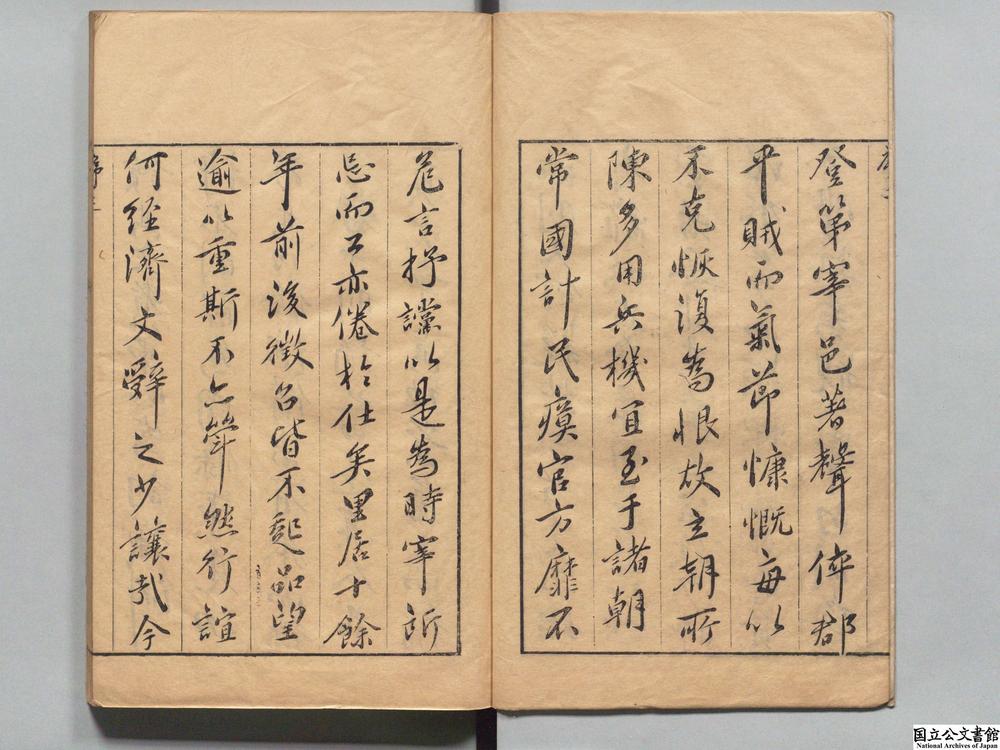 登第宰邑著聲倅郡
平賊而氣節慷慨每以
不克恢復為恨故立朝所
陳多用兵機宜至于諸朝
常國計民瘼官方靡不
危言抒讜以是為時宰所
忌而公亦倦於仕矣里居十餘
年前後徵召皆不起品望
逾以重斯不亦犖然行誼
何經濟文辭之少讓哉今
国立公文書館
National Archives of Japan